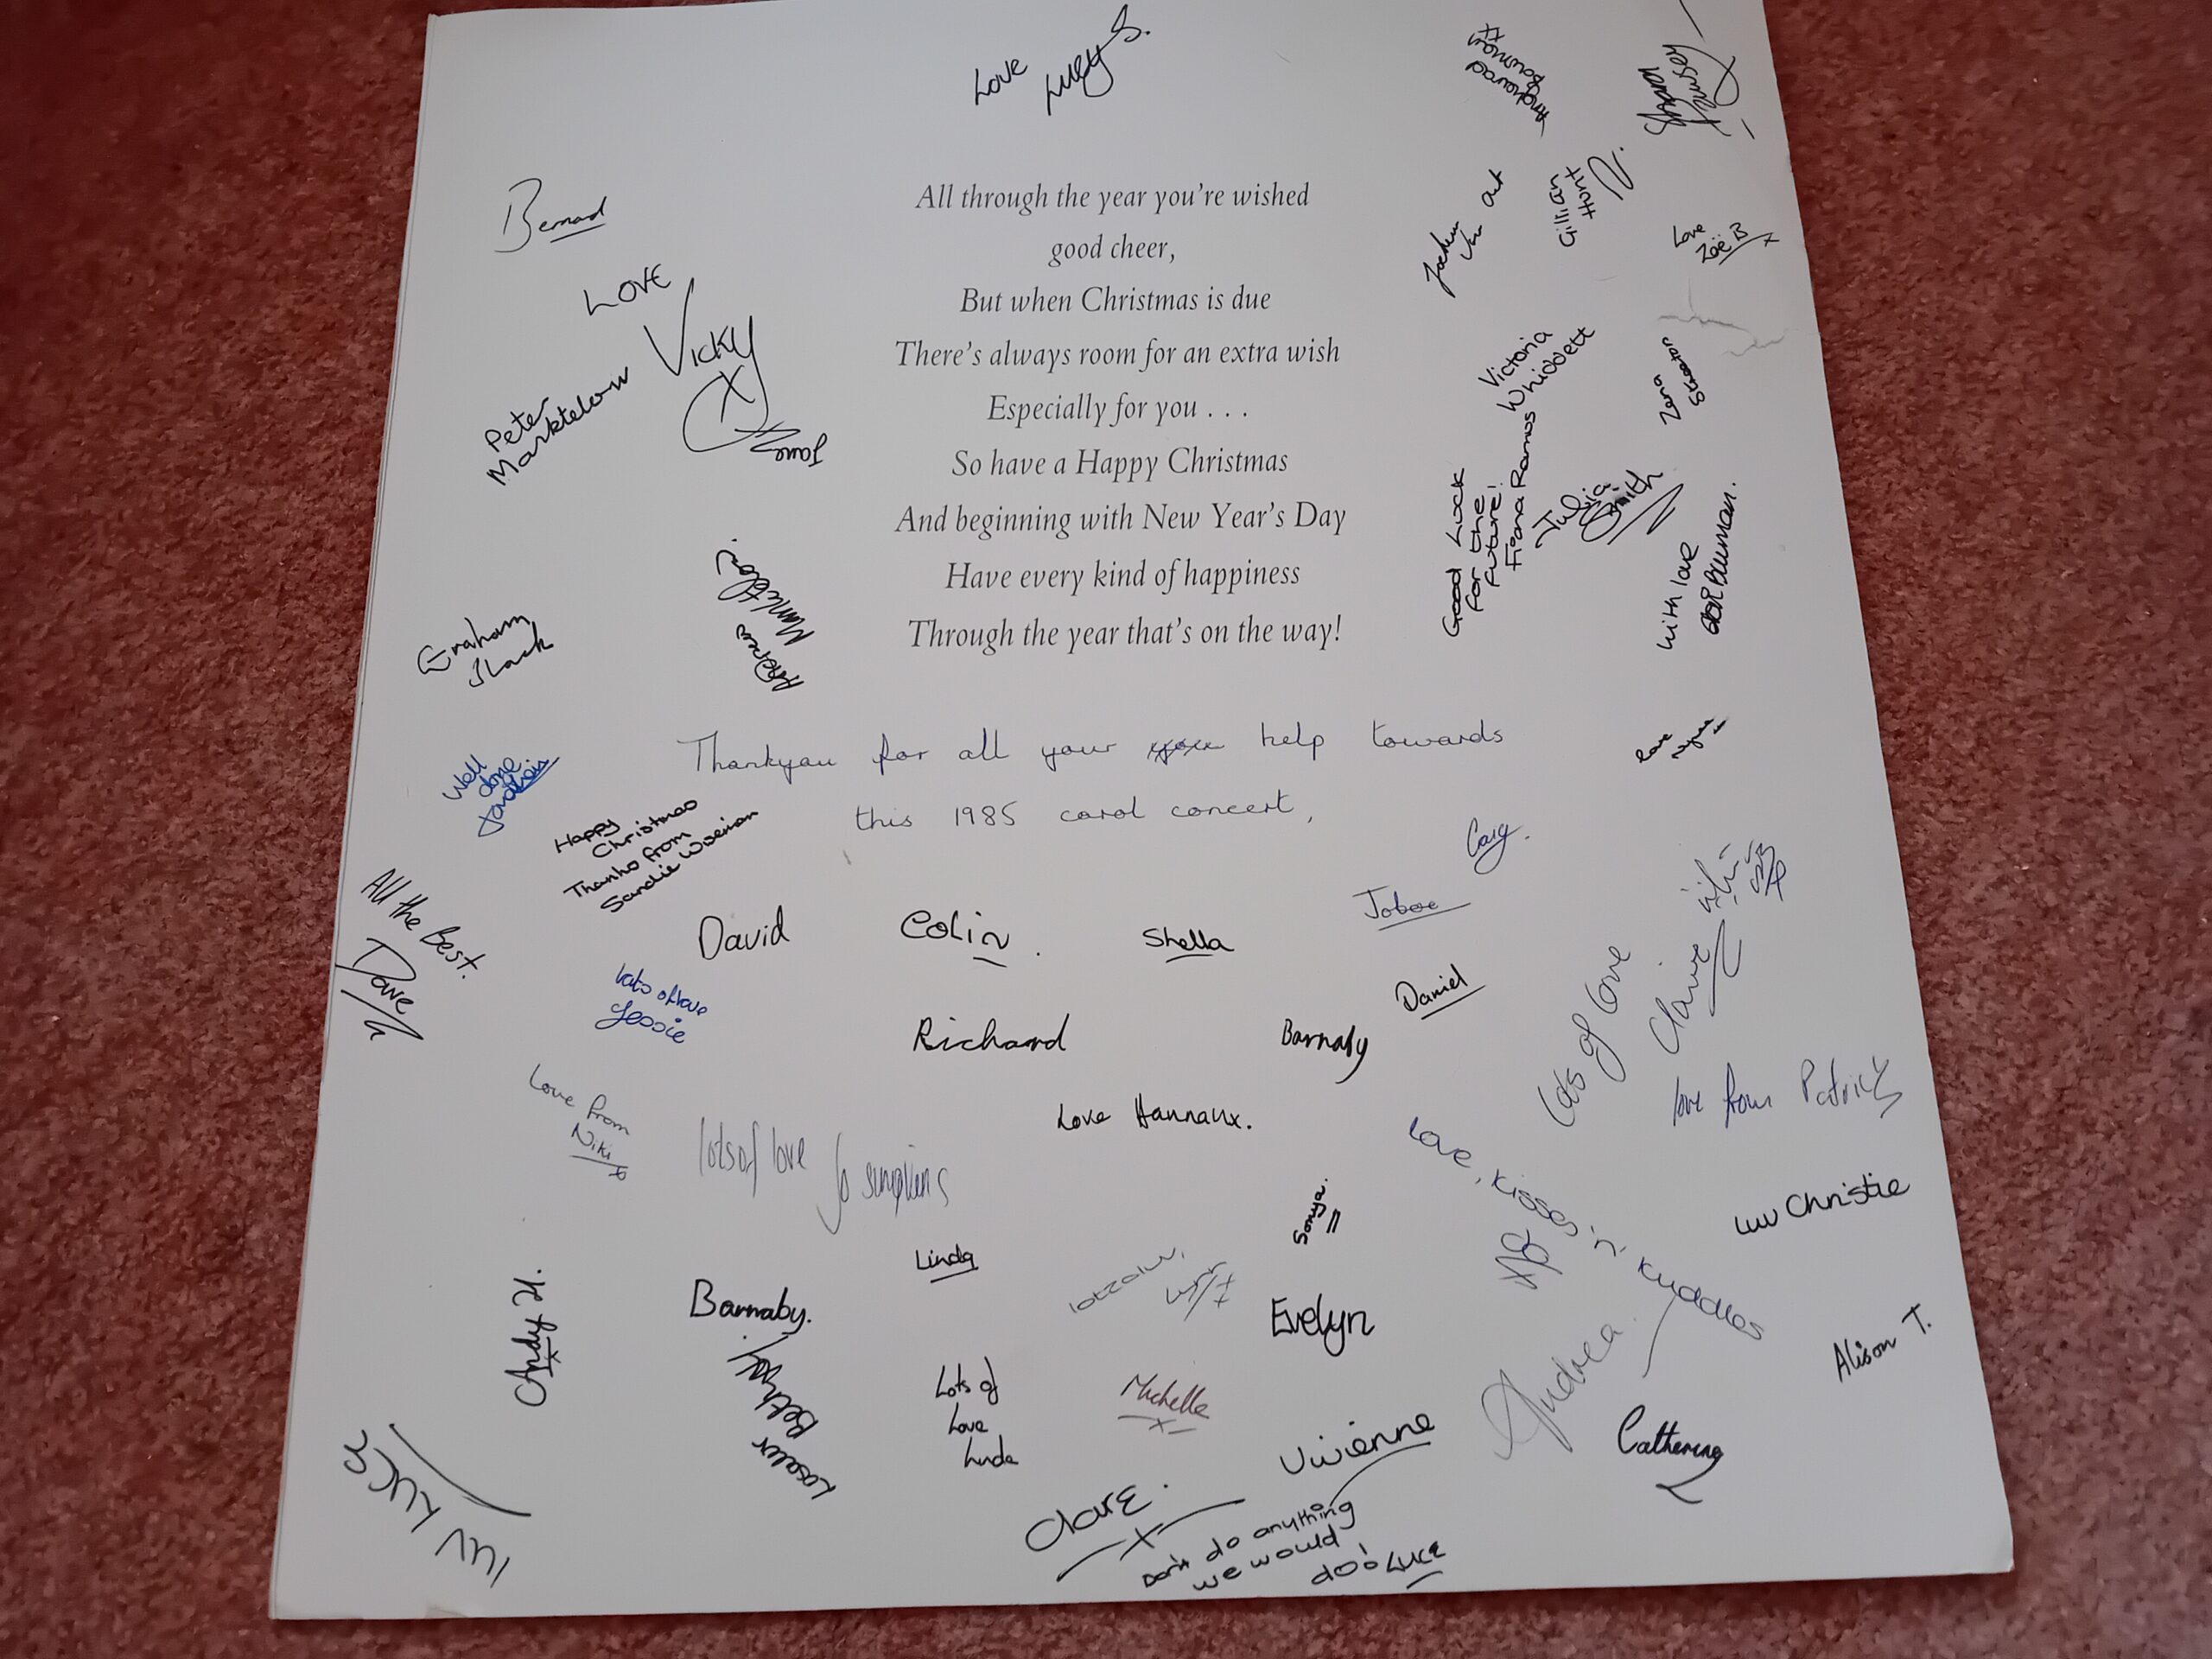 Love Lucy S.
Bernard
Love
Vicky
X
Peter
Marktelow
Jane
All through the year you're wished
good cheer,
But when Christmas is due
There's always room for an extra wish
Especially for you . . .
So have a Happy Christmas
And beginning with New Year's Day
Have every kind of happiness
Through the year that's on the way!
Gillian
Hunt
Love
Zoë B
x
Victoria
Whiddett
Zara
Good Luck
for the
future!
Fiona Ramos
Julia
Smith
with love
Graham
Slack
Andrew
Thankyou for all your help towards
this 1985 carol concert,
Well
done
Happy
Christmas
Thanks from
Sandie
All the Best.
Dave
love
Cary.
David
Colin.
Shella
Daniel
lots of love
Jessie
Richard
Barnaby
Lots of love
Claire
love from Patrick
Love from
Niki
x
Love Hannaux.
lots of love Jo Simpkins
Love, kisses 'n' kuddles
Luv Christie
Sonya.
Linda
Andy H.
x
Barnaby.
Evelyn
Alison T.
Lots of
Love
Linda
Michelle
x
Andrea.
Vivienne
Catherine
Clare.
x
Don't do anything
we would
do! Luce